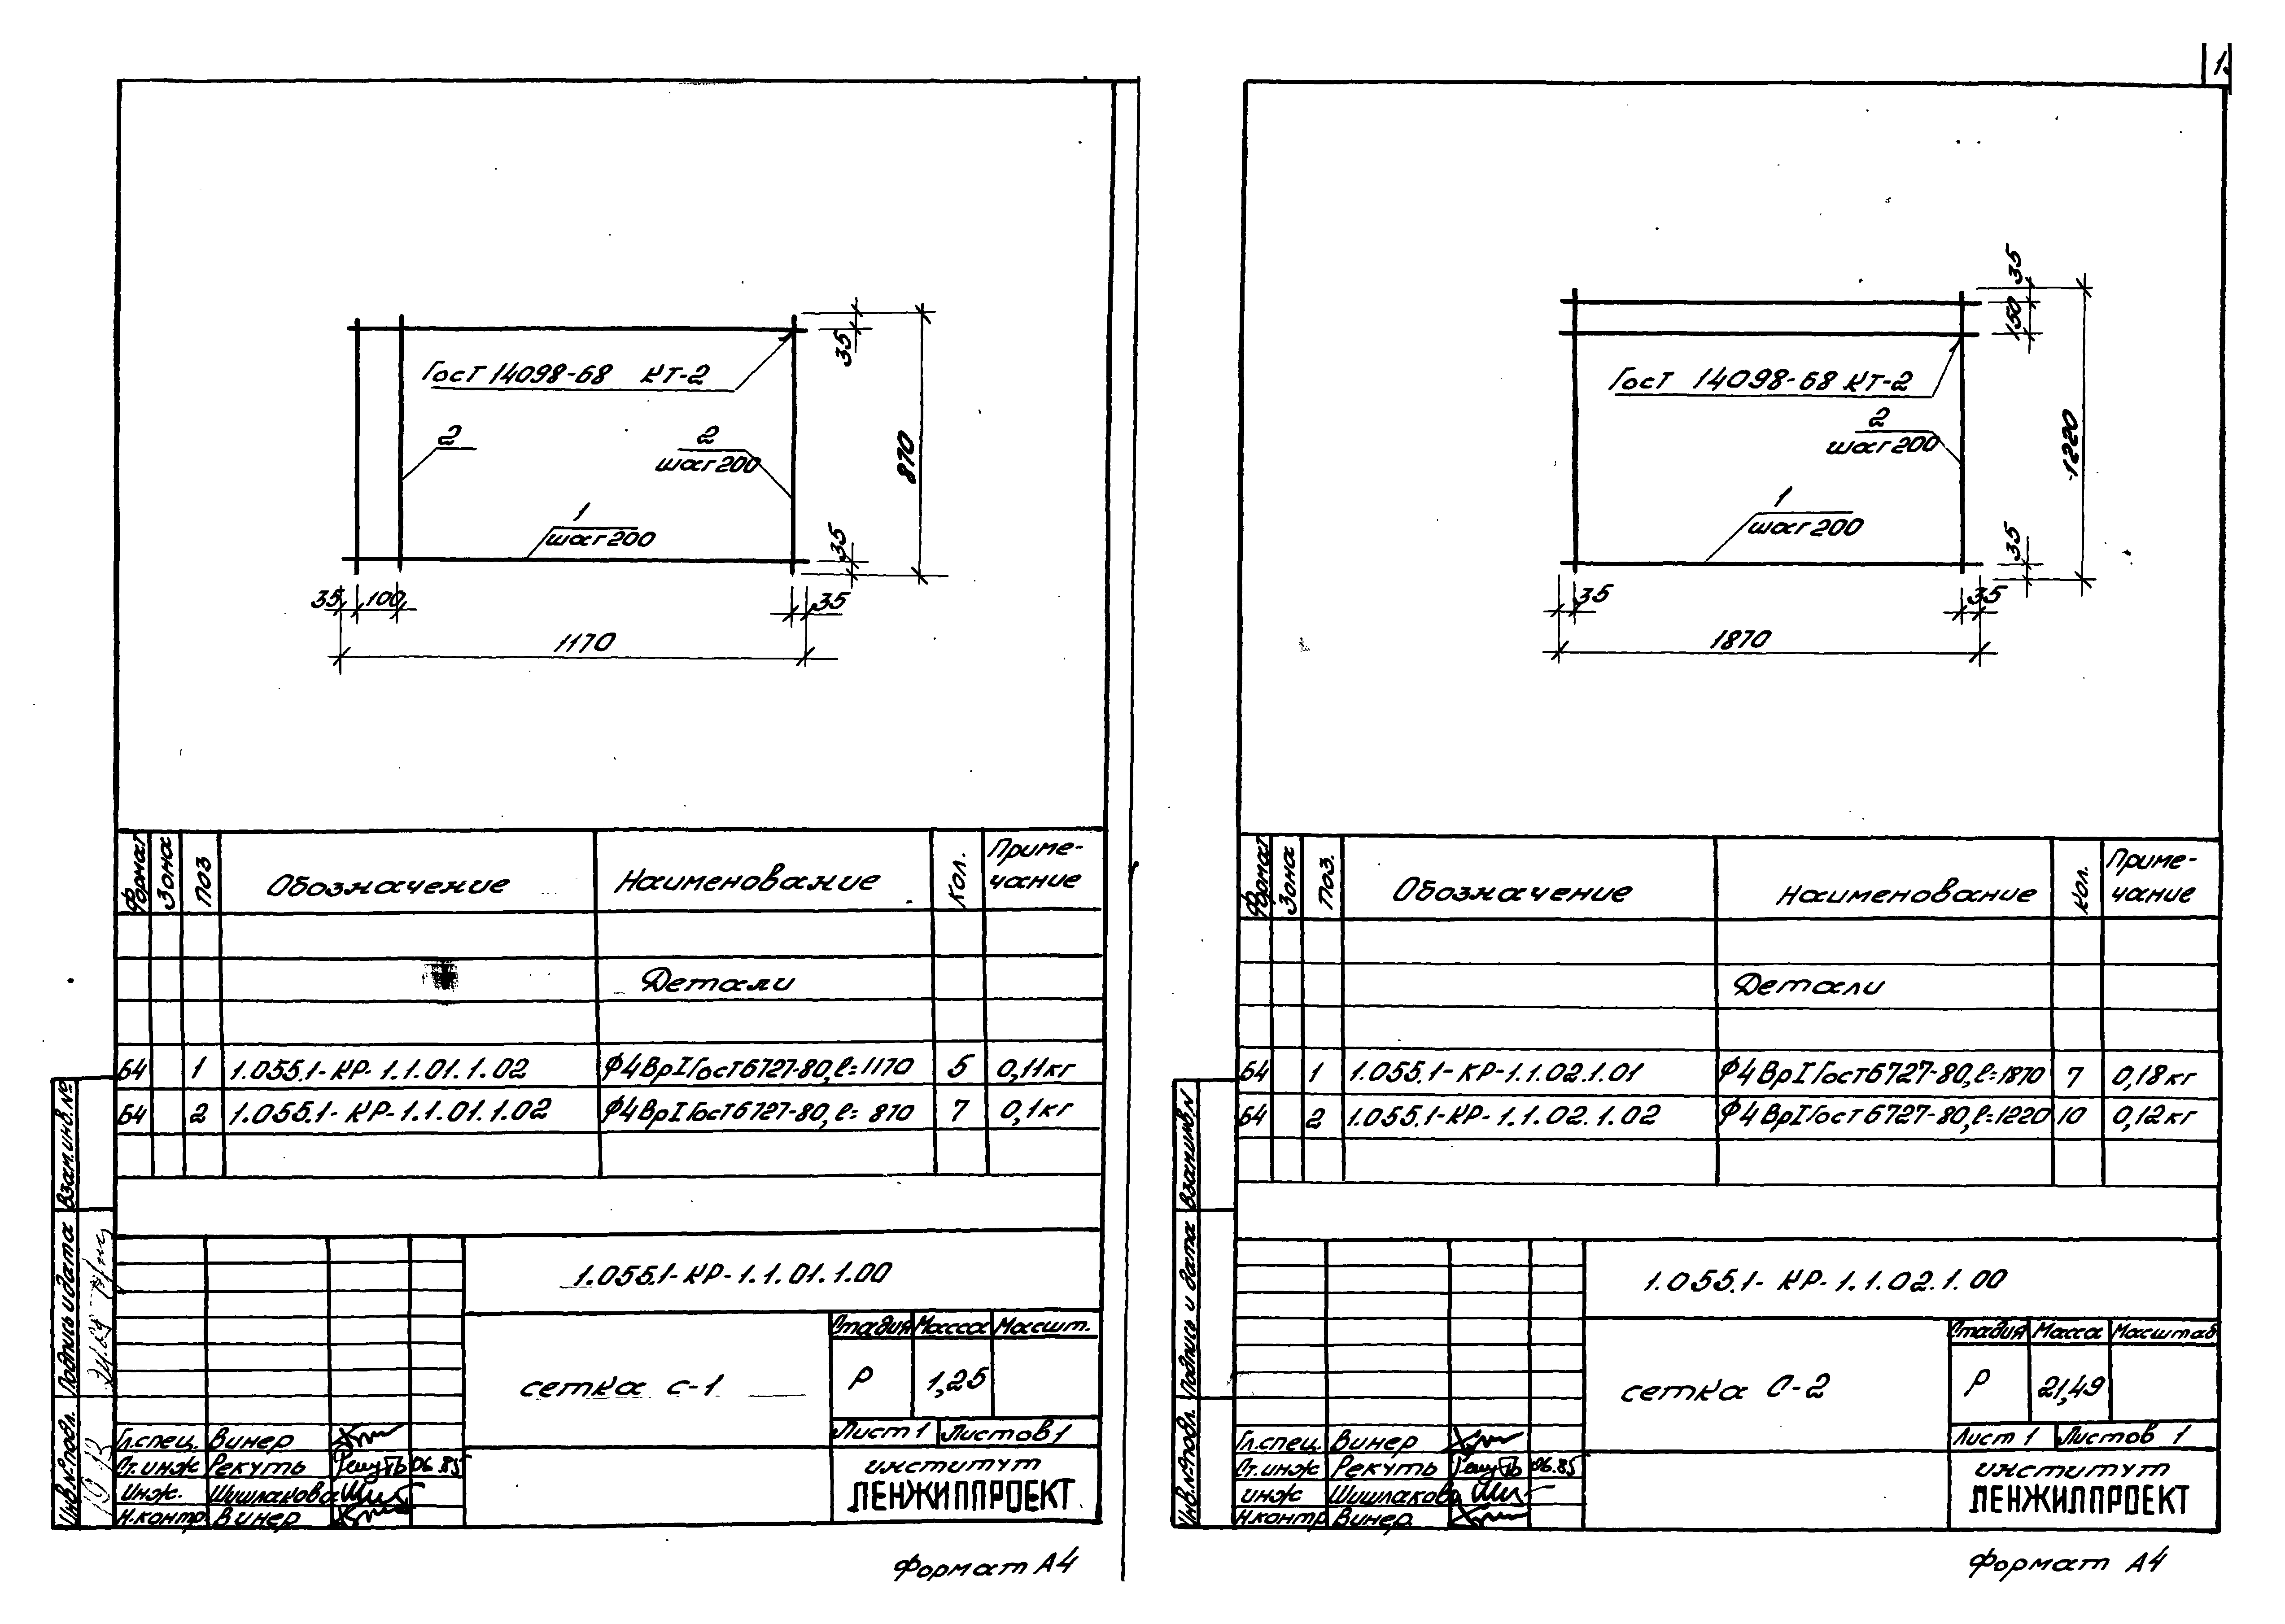 35
870
35
Гост 14098-68 КТ-2
2
2
шаг 200
1
шаг 200
35 100 35
1170
Формат Зона Поз Обозначение Наименование Кол. Приме-
чание
Детали
Б4 1 1.055.1-КР-1.1.01.1.02 Ф4ВрI Гост 6727-80, ℓ=1170 5 0,11кг
Б4 2 1.055.1-КР-1.1.01.1.02 Ф4ВрI Гост 6727-80, ℓ= 870 7 0,1кг
Взам.инв.№
Подпись и дата
Инв.№подл.
1.055.1-КР-1.1.01.1.00
сетка с-1
Стадия Масса Масшт.
Р 1,25
Лист 1 Листов 1
Гл.спец. Винер
Ст.инж Рекуть 06.85
Инж. Шушлакова
Н.контр Винер
институт
ЛЕНЖИЛПРОЕКТ
Формат А4
35
150
1220
35
Гост 14098-68 КТ-2
2
шаг 200
1
шаг 200
35 35
1870
Формат Зона Поз. Обозначение Наименование Кол. Приме-
чание
Детали
Б4 1 1.055.1-КР-1.1.02.1.01 Ф4ВрI Гост 6727-80, ℓ=1870 7 0,18кг
Б4 2 1.055.1-КР-1.1.02.1.02 Ф4ВрI Гост 6727-80, ℓ=1220 10 0,12кг
Взам.инв.N
Подпись и дата
Инв.№подл.
1.055.1-КР-1.1.02.1.00
сетка С-2
Стадия Масса Масштаб
Р 21,49
Лист 1 Листов 1
Гл.спец. Винер
Ст.инж Рекуть 06.85
инж Шушлакова
Н.контр Винер
институт
ЛЕНЖИЛПРОЕКТ
Формат А4